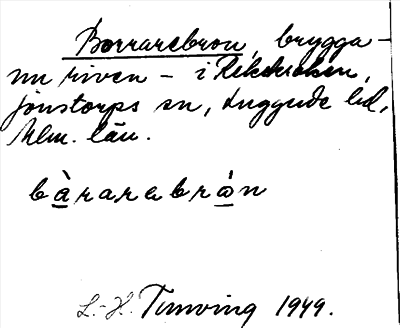 Borrarebron, brygga –
nu riven – i Rekekroken,
Jonstorps sn, Luggude hd,
Mlm. län.
bàrarebrån
L.-H. Tunving 1949.